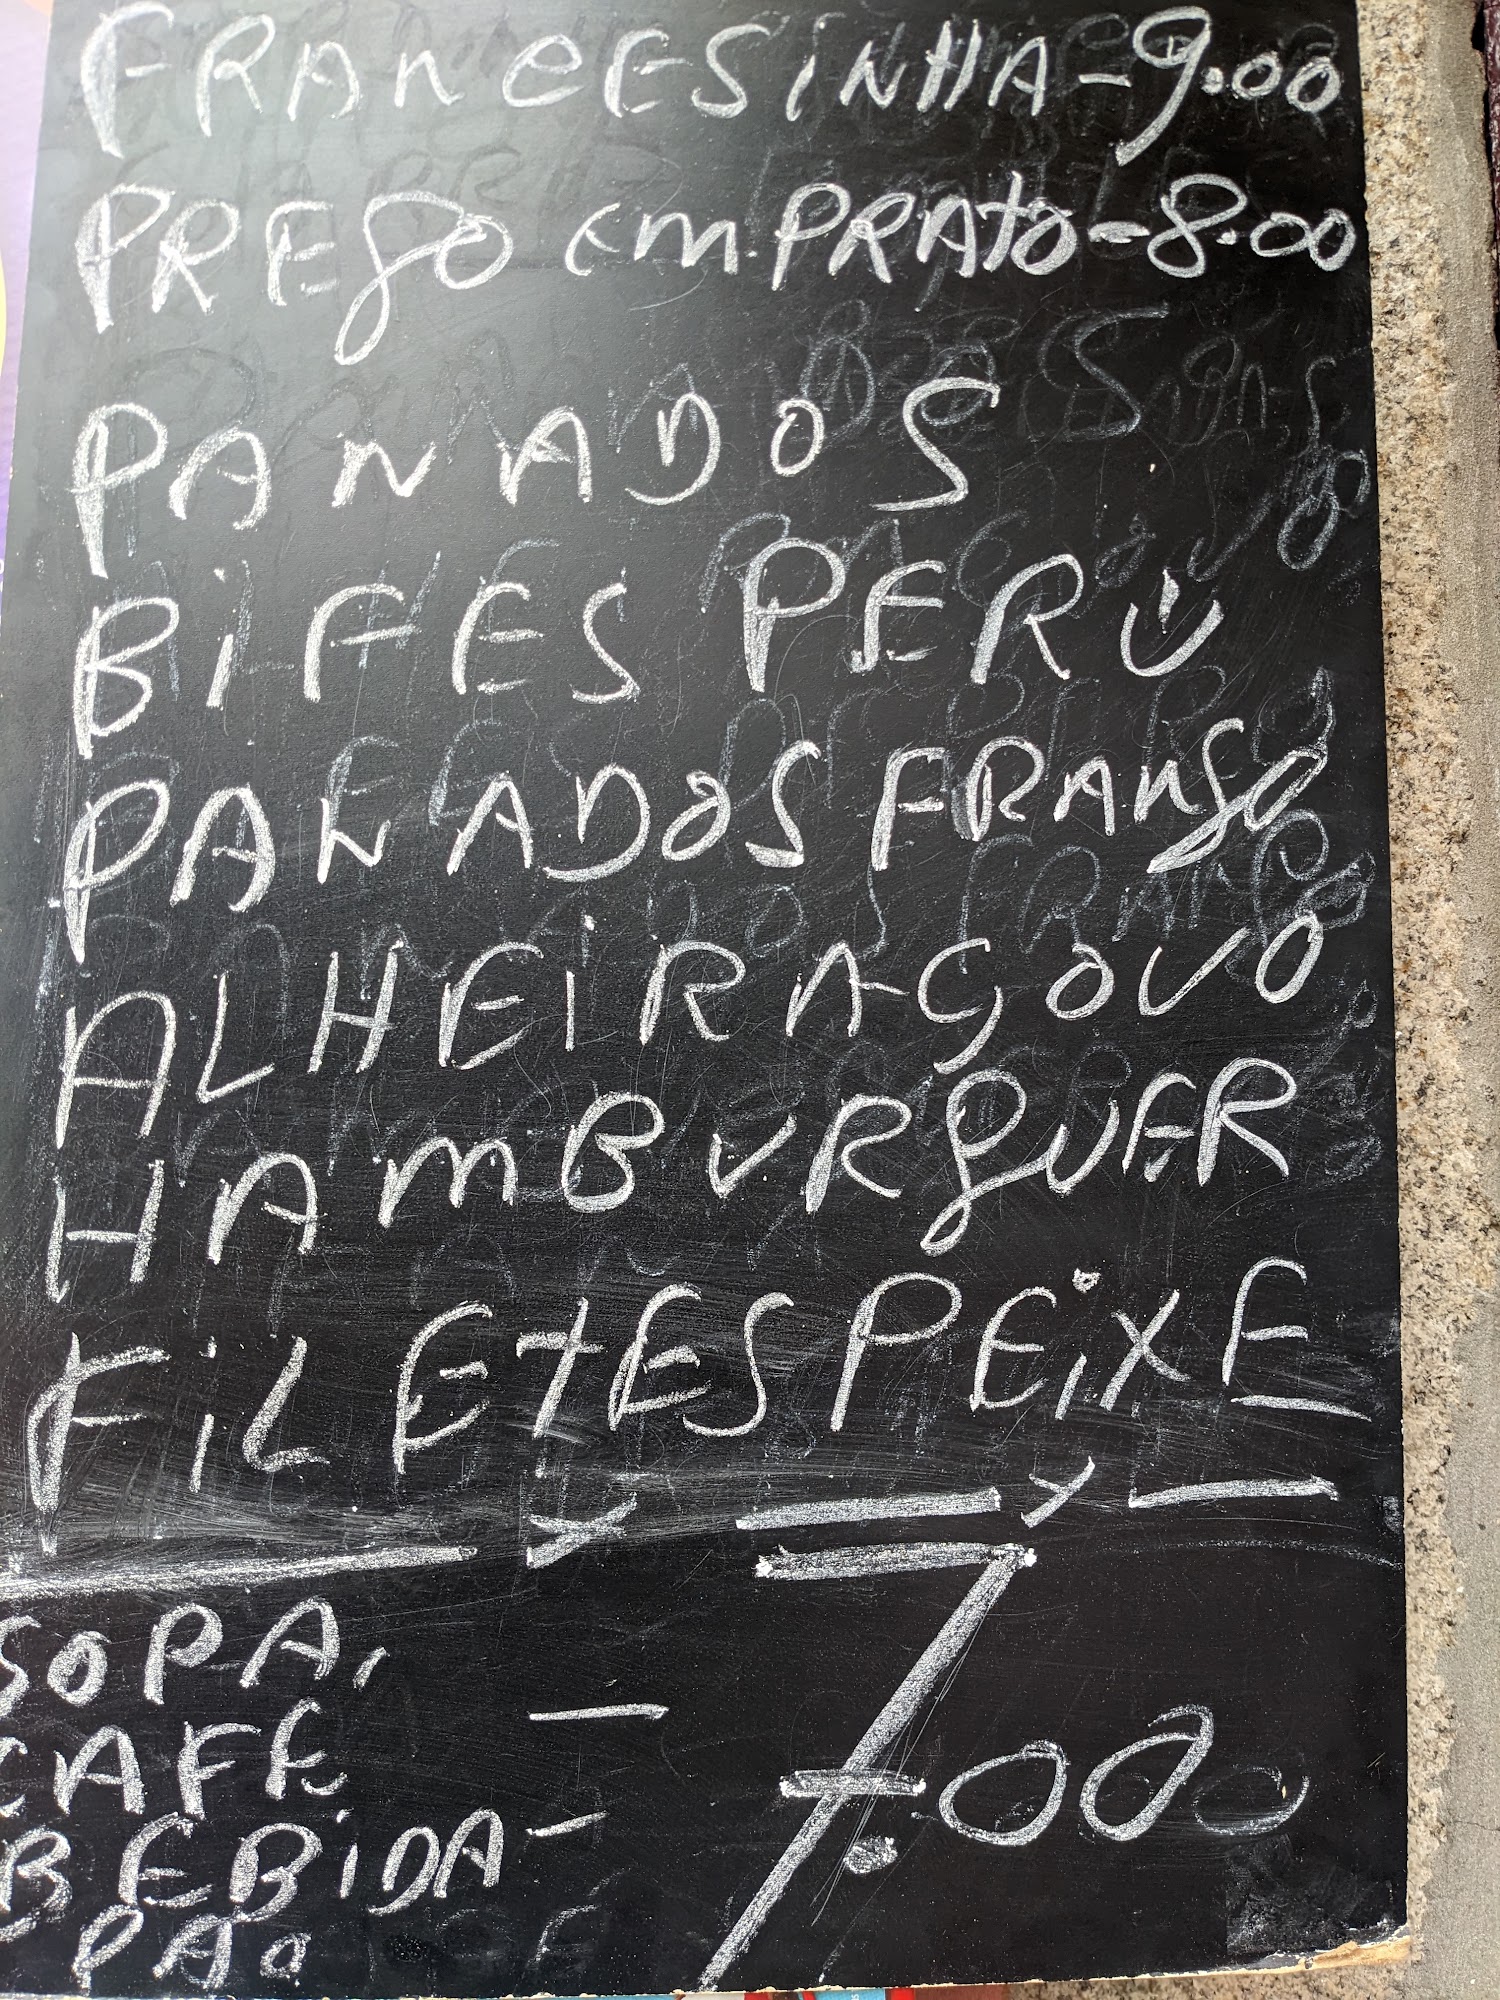 FRANCESINHA-9.00
PREGO EM PRATO-8.00
PANADOS
BIFES PERÚ
PANADOS FRANGO
ALHEIRA Ç OVO
HAMBURGUER
FILETES PEIXE
SOPA,
CAFÉ - 7.00
BEBIDA-
PAO